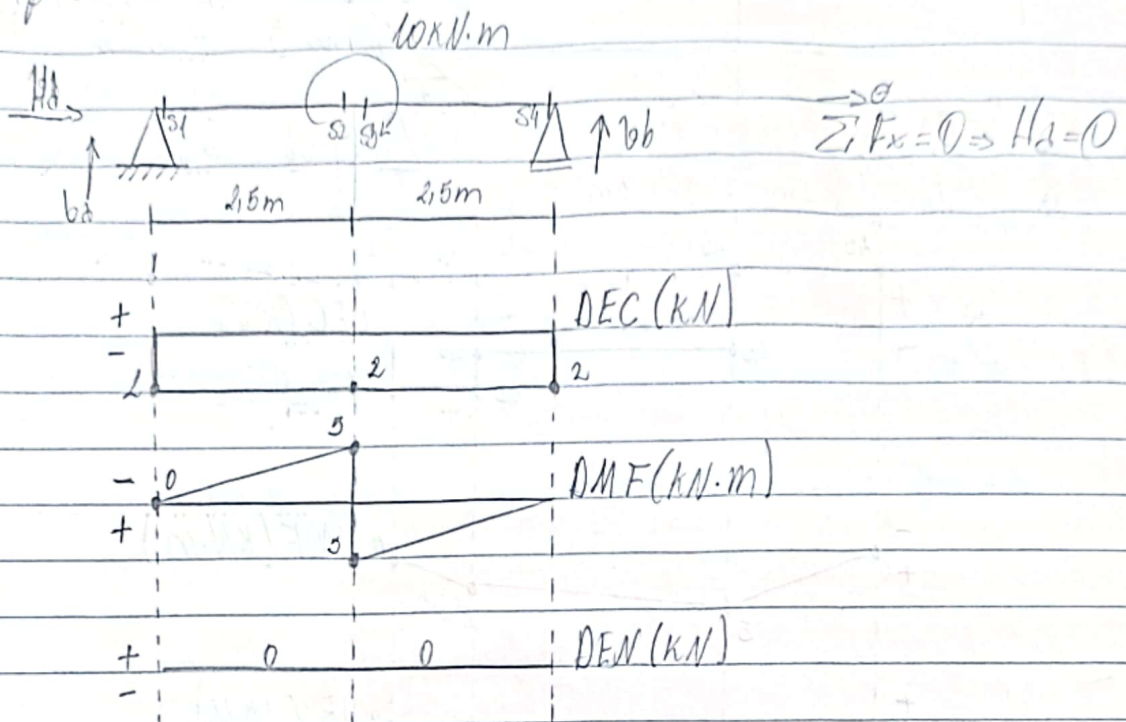 10KN.m
Ha
S1
S2
S3
S4
Vb
ΣFx=0⇒ Ha=0
Va
2,5m
2,5m
DEC(KN)
+
-
2
2
2
5
- 0
DMF(KN.m)
+
5
+
0
0
DEN(KN)
-